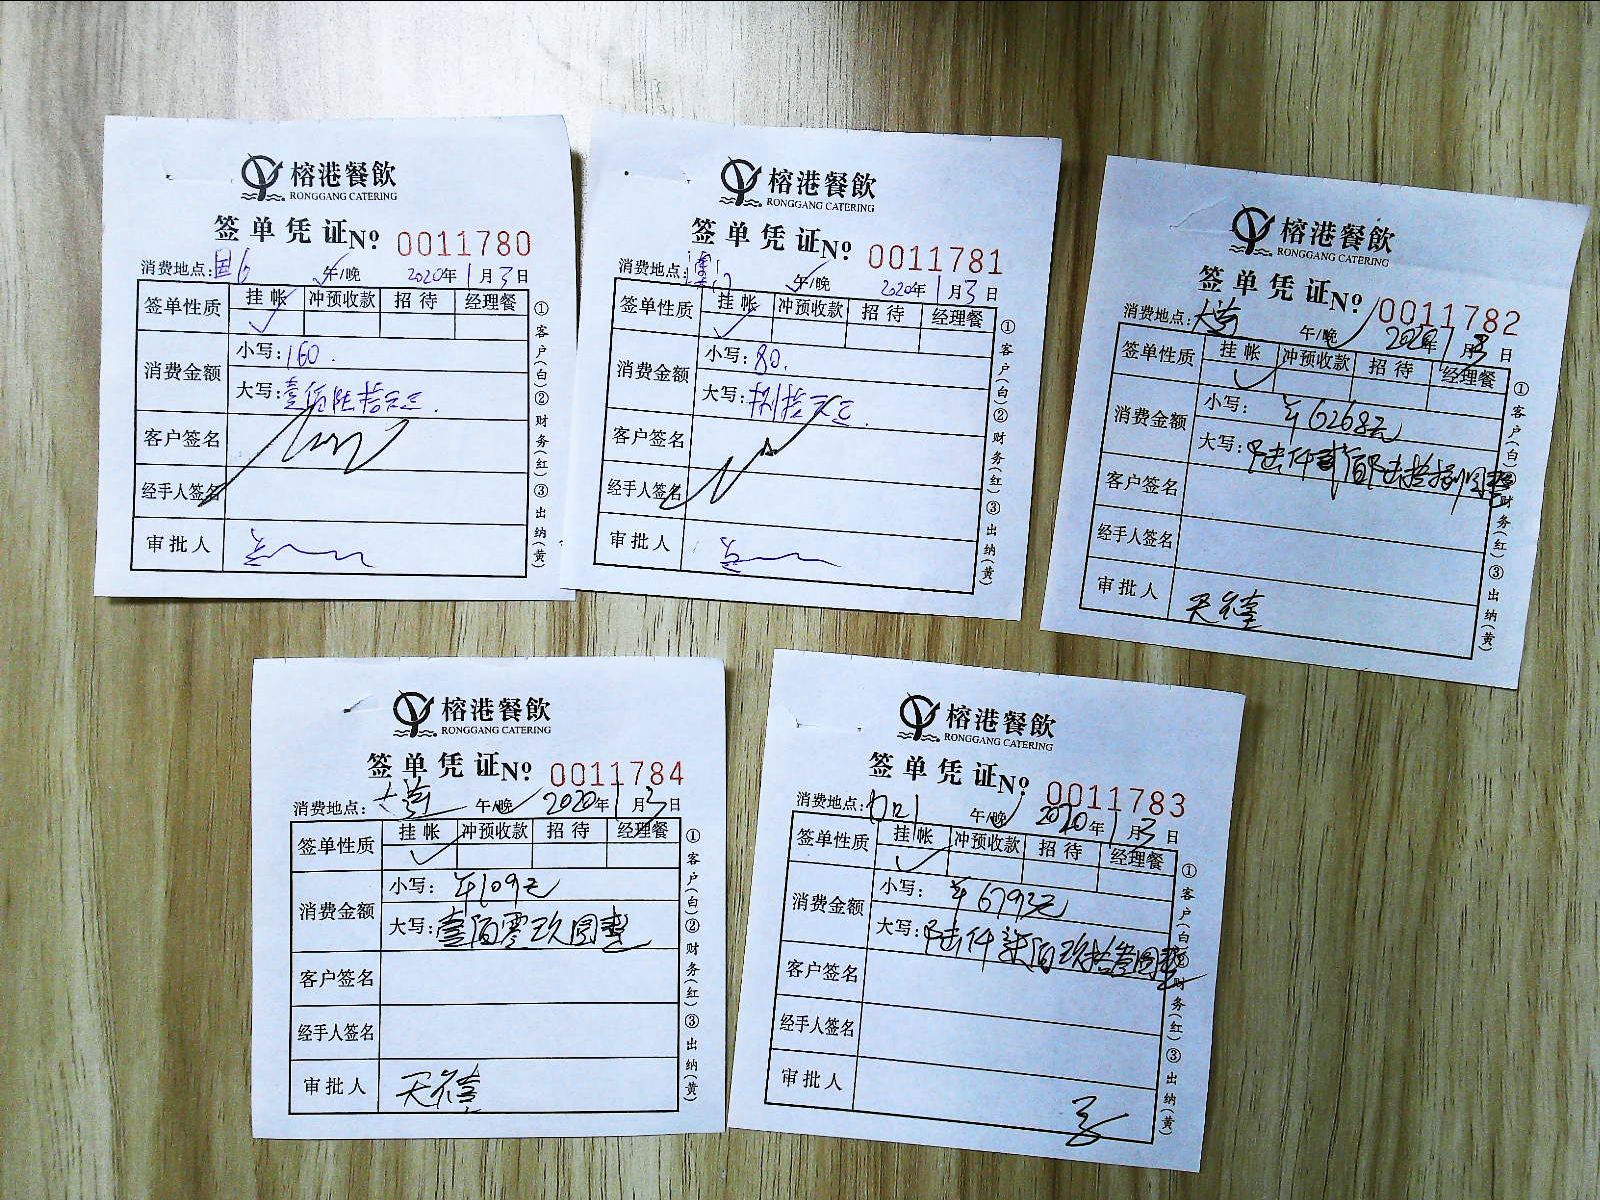 榕港餐飲
RONGGANG CATERING
签单凭证No 0011780
消费地点: 午/晚 2020年1月3日
签单性质 挂帐 冲预收款 招待 经理餐
消费金额 小写:160.
大写:壹佰陆拾元正.
客户签名
经手人签名
审批人
①客户(白)②财务(红)③出纳(黄)
榕港餐飲
RONGGANG CATERING
签单凭证No 0011781
消费地点: 午/晚 2020年1月3日
签单性质 挂帐 冲预收款 招待 经理餐
消费金额 小写:80.
大写:捌拾元正.
客户签名
经手人签名
审批人
①客户(白)②财务(红)③出纳(黄)
榕港餐飲
RONGGANG CATERING
签单凭证No 0011782
消费地点: 午/晚 2020年1月3日
签单性质 挂帐 冲预收款 招待 经理餐
消费金额 小写:¥6268元
大写:陆仟贰佰陆拾捌圆整
客户签名
经手人签名
审批人
①客户(白)②财务(红)③出纳(黄)
榕港餐飲
RONGGANG CATERING
签单凭证No 0011784
消费地点: 午/晚 2020年1月3日
签单性质 挂帐 冲预收款 招待 经理餐
消费金额 小写:¥109元
大写:壹佰零玖圆整
客户签名
经手人签名
审批人
①客户(白)②财务(红)③出纳(黄)
榕港餐飲
RONGGANG CATERING
签单凭证No 0011783
消费地点: 午/晚 2020年1月3日
签单性质 挂帐 冲预收款 招待 经理餐
消费金额 小写:¥6793元
大写:陆仟柒佰玖拾叁圆整
客户签名
经手人签名
审批人
①客户(白)②财务(红)③出纳(黄)